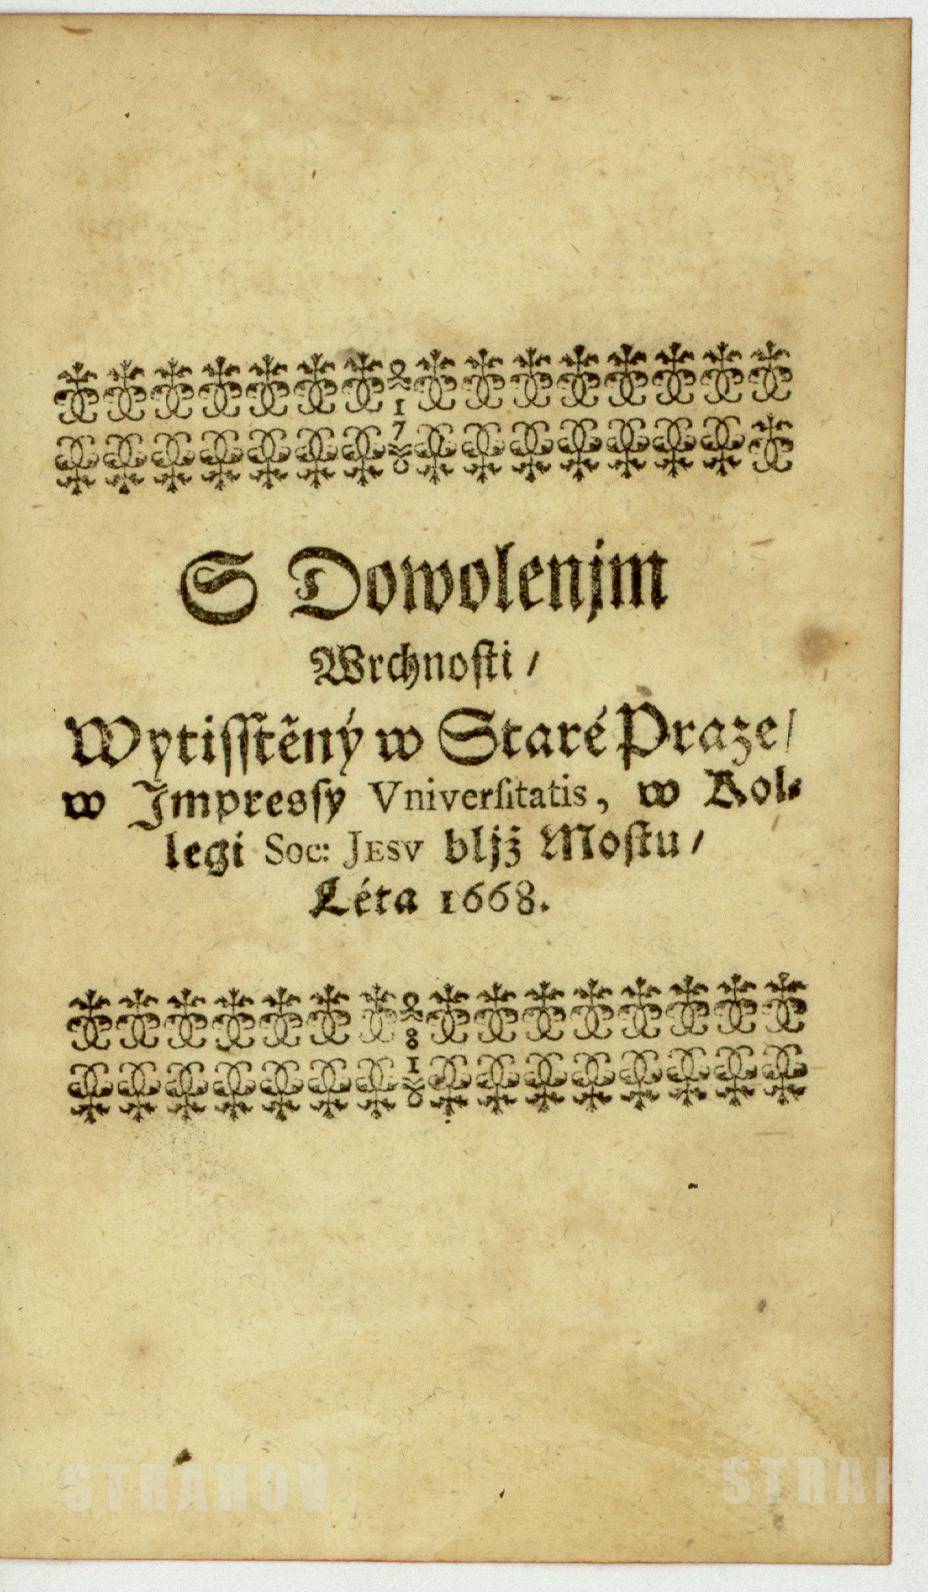 17
S Dowolenjm
Wrchnosti /
Wytisstěný w Staré Praze /
w Jmpressy Vniversitatis, w Kol-
legi Soc: JESV bljž Mostu /
Léta 1668.
81
STRAHOV STRAH